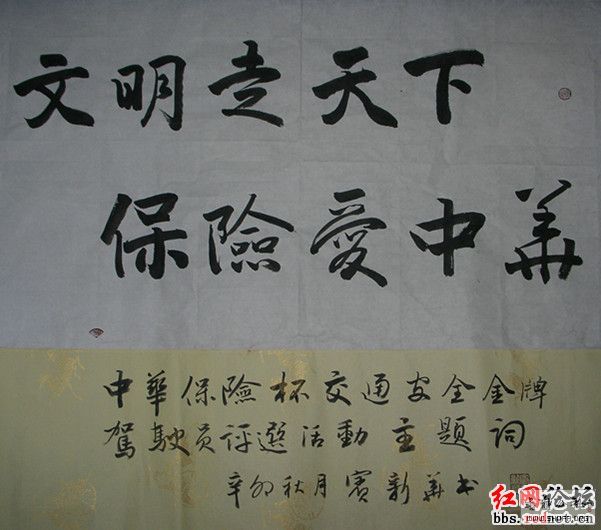 文明走天下
保險愛中華
中華保險杯交通安全金牌
駕駛员评選活動主题词
辛卯秋月賽新華书
红网论坛
bbs.rednet.cn